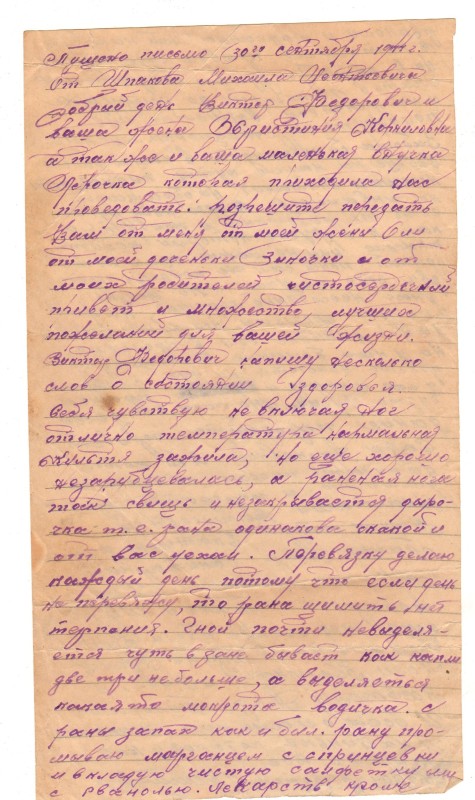 Пущено письмо 30го сентября 194 г.
от Шпакова Михаила Леонтьевича
Добрый день Виктор Федорович и
ваша жена Христиния Корниловна
а так же и ваша маленькая внучка
Лёрочка которая приходила нас
проведовать. розрешите передать
Вам от меня от моей жены Оли
от моей доченьки Зиночки и от
моих родителей чистосердечный
привет и множество лучших
пожеланий для вашей жизни.
Виктор Федорович напишу несколько
слов о состоянии здоровья.
Себя чувствую не включая ног
отлично температура нармальная
культя зажила, но еще хорошо
незарубцевалась, а раненая нога
тоже свищь и незакрывается дыро-
чка т.е. рана одинакова скакой и
от вас уехал. Перевязку делаю
каждый день потому что если день
не перевяжу, то рана щимить нет
терпения. Гной почти невыделя-
ется чуть в ране бывает как капли
две три не больше, а выделяеться
какаято мокрота водичка. с
раны запах как и был. рану про-
мываю марганцем с спринцевки
и вкладую чистую салфетку или
с риванолью. Лекарств кроме